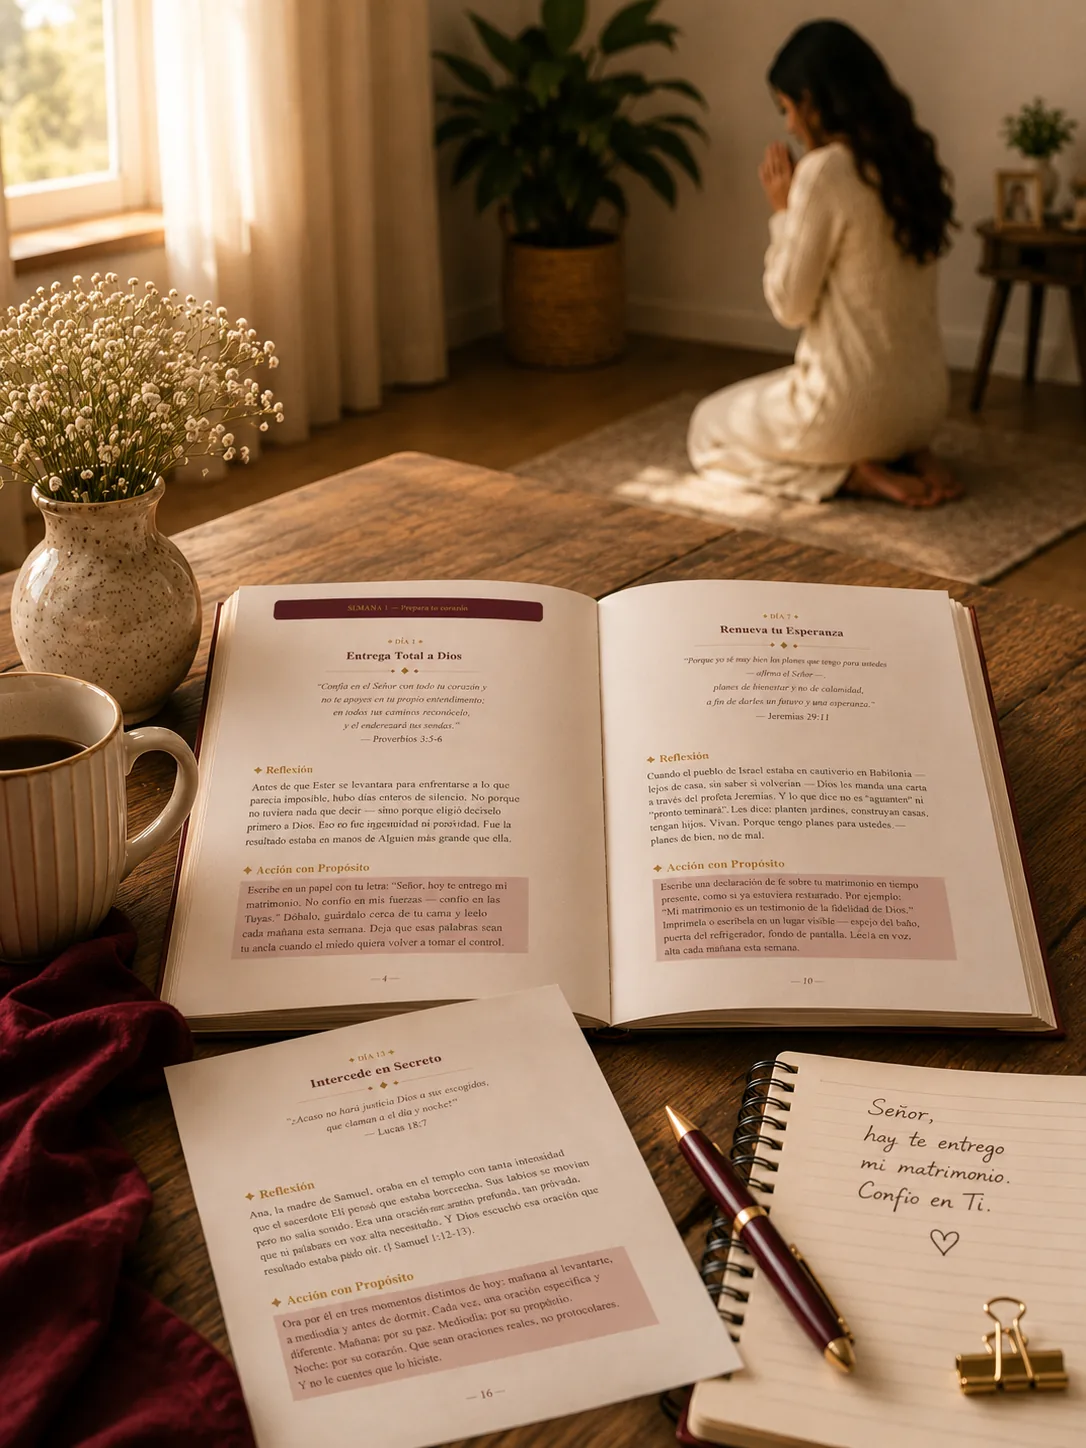 SEMANA 1 — Prepara tu corazón
DÍA 1
Entrega Total a Dios
“Confía en el Señor con todo tu corazón y
no te apoyes en tu propio entendimiento;
en todos tus caminos reconócelo,
y el enderezará tus sendas.”
— Proverbios 3:5-6
Reflexión
Antes de que Ester se levantara para enfrentarse a lo que
parecía imposible, hubo días enteros de silencio. No porque
no tuviera nada que decir — sino porque eligió
primero a Dios. Eso no fue ingenuidad ni Fue la
resultado estaba en manos de Alguien más grande que ella.
Acción con Propósito
Escribe en un papel con tu letra: “Señor, hoy te entrego mi
matrimonio. No confío en mis fuerzas — confío en las
Tuyas.” Dóbalo, guárdalo cerca de tu cama y léelo
cada mañana esta semana. Deja que esas palabras sean
tu ancla cuando el miedo quiera volver a tomar el control.
— 4 —
DÍA 7
Renueva tu Esperanza
“Porque yo sé muy bien los planes que tengo para ustedes
— afirma el Señor —,
planes de bienestar y no de calamidad,
a fin de darles un futuro y una esperanza.”
— Jeremías 29:11
Reflexión
Cuando el pueblo de Israel estaba en cautiverio en Babilonia —
lejos de casa, sin saber si volverían — Dios les manda una carta
a través del profeta Jeremías. Y lo que dice no es “aguanten” ni
“pronto teminará”. Les dice: planten jardines, construyan casas,
tengan hijos. Vivan. Porque tengo planes para ustedes —
planes de bien, no de mal.
Acción con Propósito
Escribe una declaración de fe sobre tu matrimonio en tiempo
presente, como si ya estuviera restaurado. Por ejemplo:
“Mi matrimonio es un testimonio de la fidelidad de Dios.”
Imprímela o escríbela en un lugar visible — espejo del baño,
puerta del refrigerador, fondo de pantalla. Léela en voz,
alta cada mañana esta semana.
— 10 —
DÍA 13
Intercede en Secreto
“¿Acaso no hará justicia Dios a sus escogidos,
que claman a el día y noche?”
— Lucas 18:7
Reflexión
Ana, la madre de Samuel, oraba en el templo con tanta intensidad
que el sacerdote Elí pensó que estaba borrcecha. Sus labios se movían
pero no salía sonido. Era una oración profunda, tan privada,
que ni palabars en voz alta necesitaña. Y Dios escuchó esa oración que
resultado estaba oír. Samuel 1:12-13).
Acción con Propósito
Ora por él en tres momentos distintos de hoy: mañana al levantarte,
a mediodía y antes de dormir. Cada vez, una oración específica y
diferente. Mañana: por su paz. Mediodía: por su propósito.
Noche: por su corazón. Que sean oraciones reales, no protocolares.
Y no le cuentes que lo hiciste.
— 16 —
Señor,
hay te entrego
mi matrimonio.
Confío en Ti.